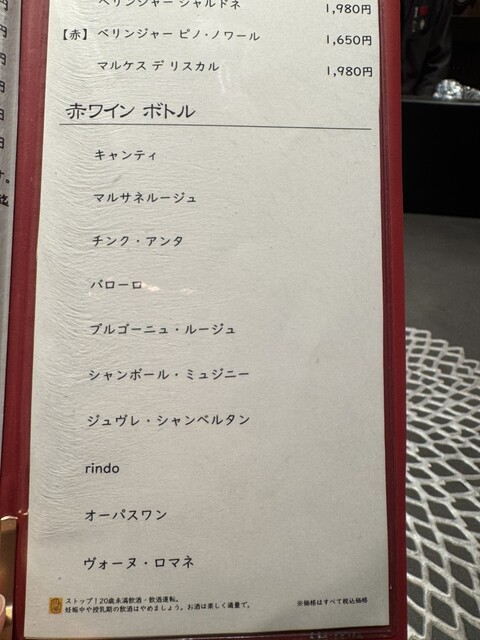 ベリンジャー シャルドネ 1,980円
【赤】ベリンジャー ピノ・ノワール 1,650円
マルケス デ リスカル 1,980円
赤ワイン ボトル
キャンティ
マルサネルージュ
チンク・アンタ
バローロ
ブルゴーニュ・ルージュ
シャンボール・ミュジニー
ジュヴレ・シャンベルタン
rindo
オーパスワン
ヴォーヌ・ロマネ
ストップ！20歳未満飲酒・飲酒運転。
妊娠中や授乳期の飲酒はやめましょう。お酒は楽しく適量で。 ※価格はすべて税込価格